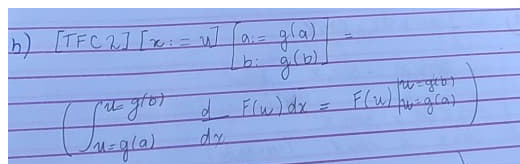 h) [TFC2] [x:=u] [a:= g(a)
b: g(b)] =
(∫_{u=g(a)}^{u=g(b)} d/dx F(u) dx = F(u) |_{u=g(a)}^{u=g(b)})